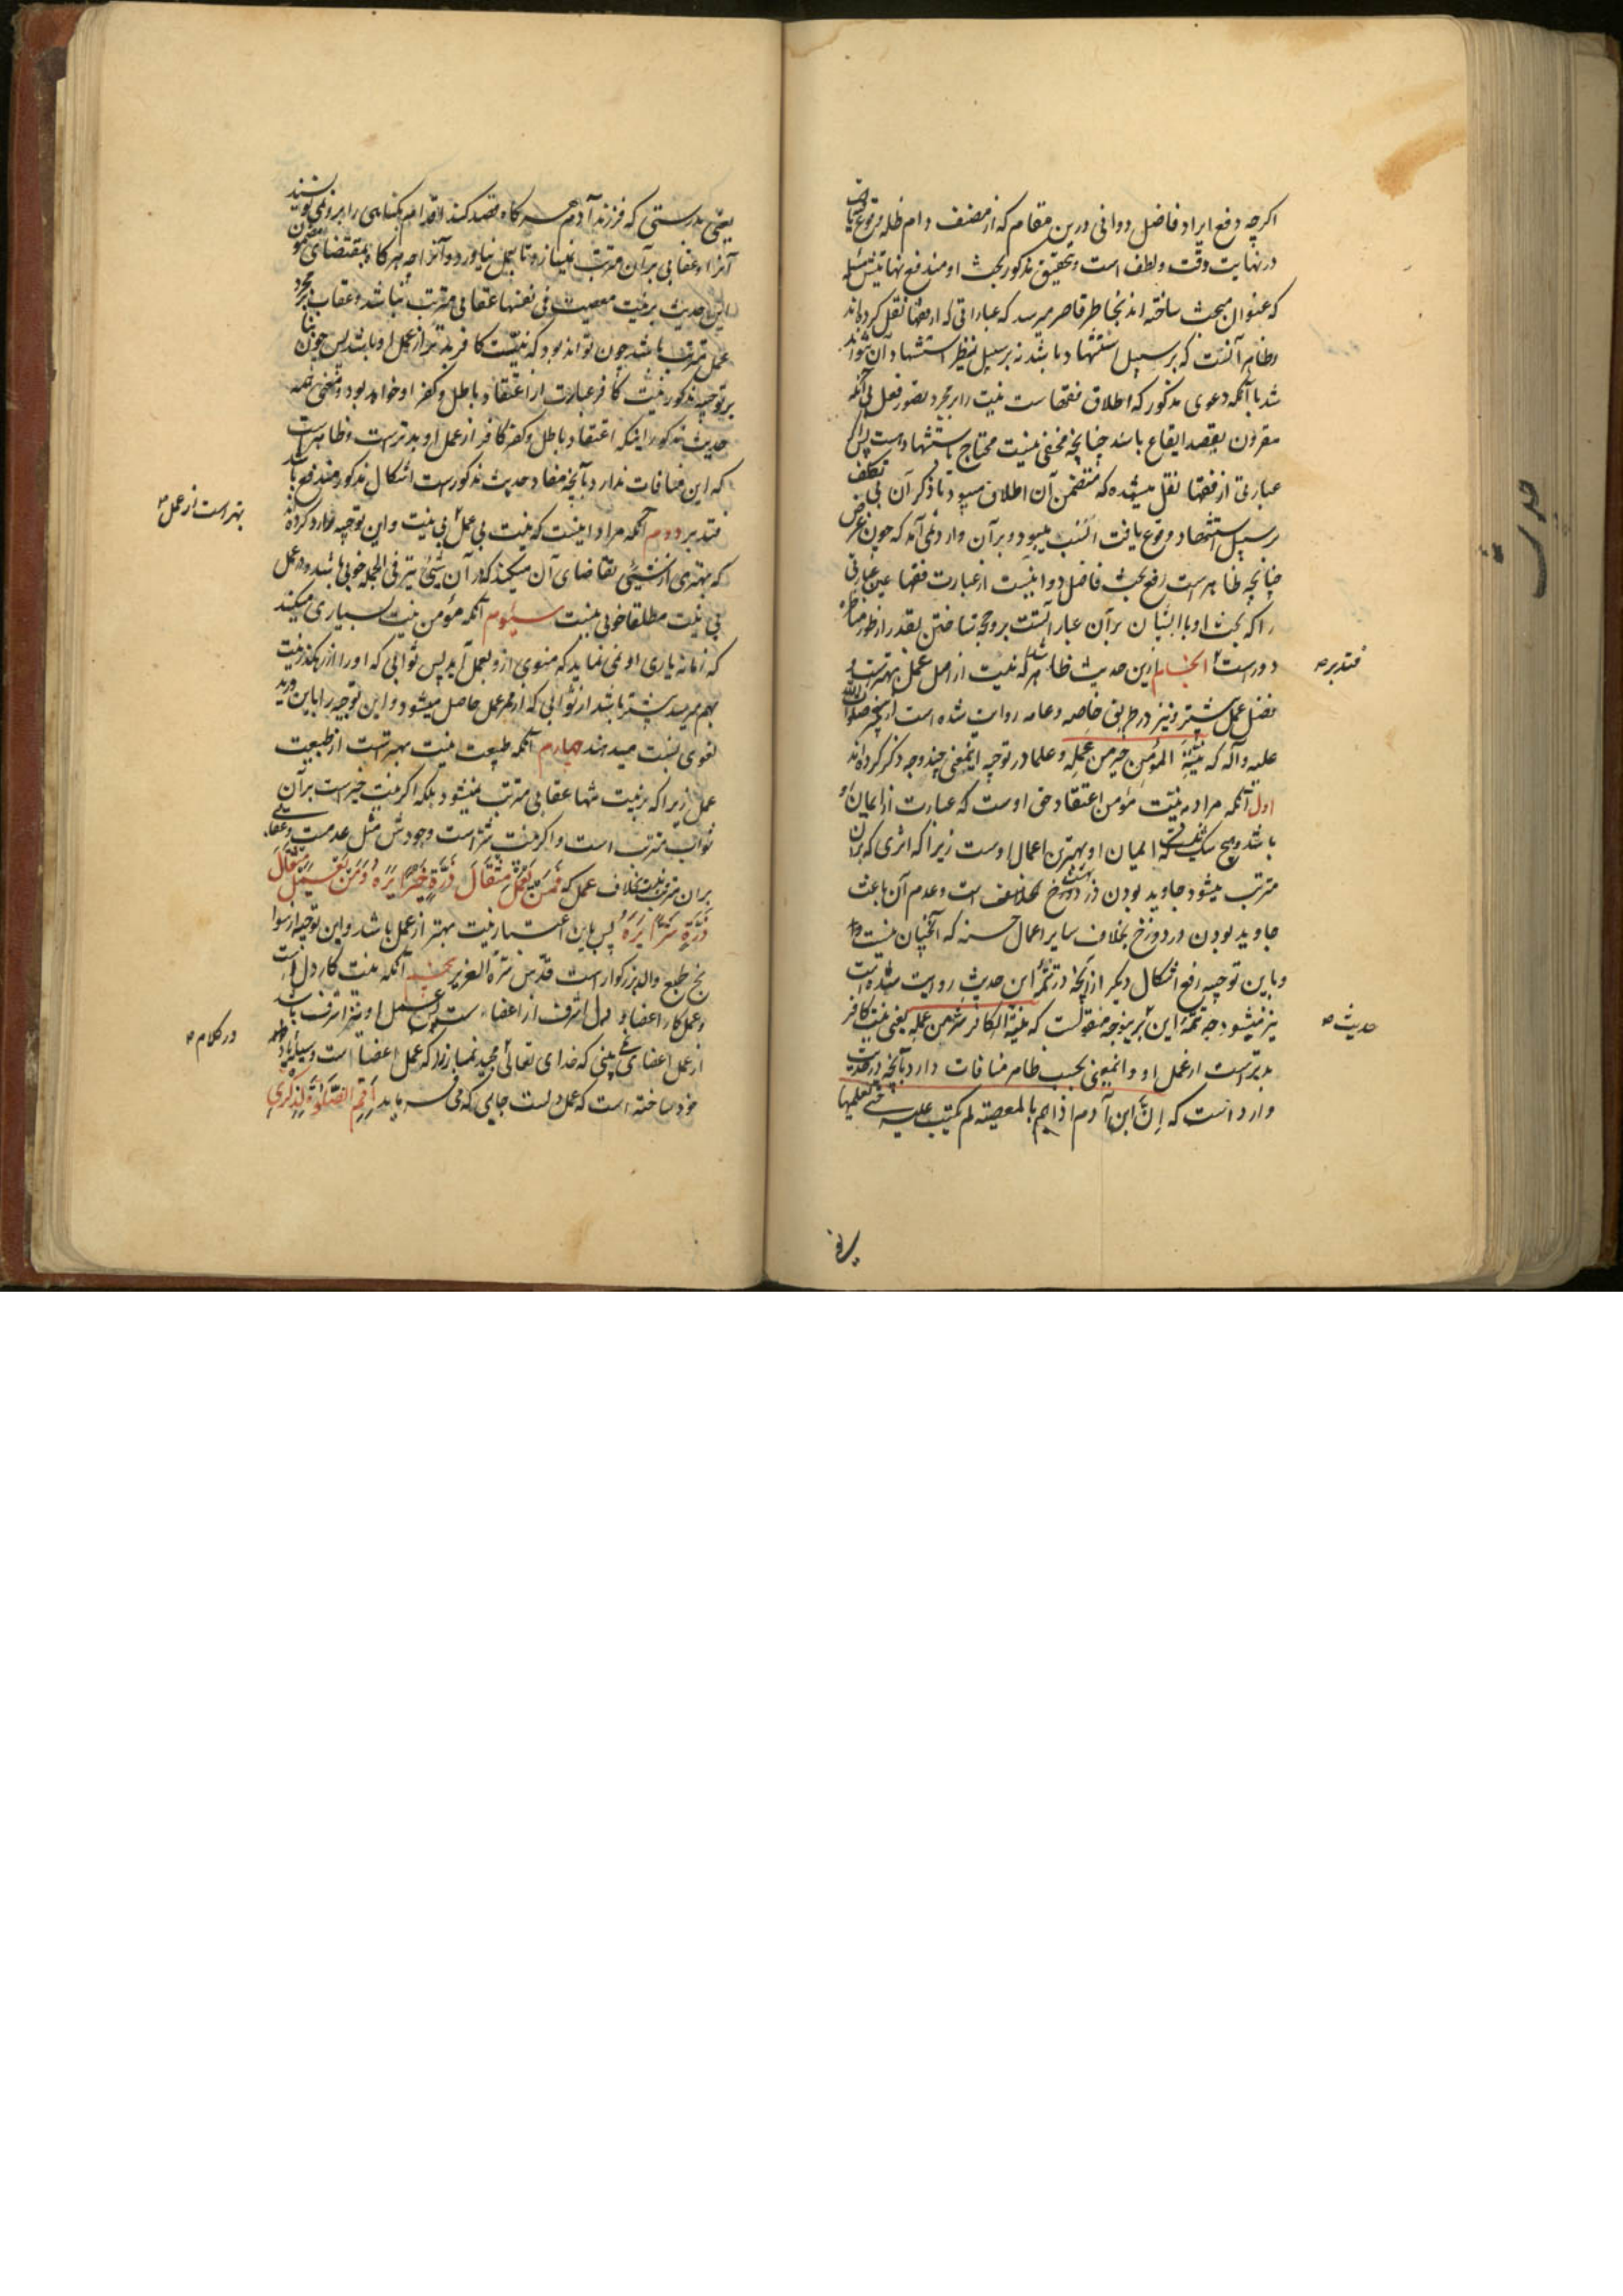 اکرچه دفع ایراد فاضل دوانی درین مقام که از مصنف دام ظله وقوع یافت
در نهایت دقت و لطف است و تحقیق مذکور بحث او مندفع نهایتش
که عنوان مبحث ساخته اند بخاطر قاصر میرسد که عباراتی که از فقها نقل کرده اند
و ظاهر آنست که بر سبیل استشهاد باشد نه بر سبیل تنظیر استشهاد آن نتواند
شد با آنکه دعوی مذکور که اطلاق فقهاست نیت را بر مجرد تصور فعل بی آنکه
مقرون بقصد ایقاع باشد چنانچه مخفی نیست محتاج باستشهاد است پس اکر
عبارتی از فقها نقل میشد که متضمن آن اطلاق میبود تا ذکر آن بی تکلف
بر سبیل استشهاد وقوع یافت انسب میبود و بر آن وارد نمی آمد که چون غرض
چنانچه ظاهرست رفع بحث فاضل دوانیست از عبارت فقها عین عبارتی
را که بحث او با ایشان بر آن عبارتست بر وجه حجت ساختن بقدر از طور مناظره
دورست ۲ انجام این حدیث ظاهر شد که نیت از اصل عمل بهترست و
فضل عمل بیشتر و نیز در طریق خاصه و عامه روایت شده است از پیغمبر صلوات الله
علیه و آله که نیّة المؤمن خیر من عمله و علما در توجیه اینمعنی چند وجه ذکر کرده اند
اول آنکه مراد به نیّت مؤمن اعتقاد حق اوست که عبارت از ایمان او
باشد و هیچ شک نیست که ایمان او بهترین اعمال اوست زیرا که اثری که بر آن
مترتب میشود جاوید بودن در بهشت است و عدم آن باعث
جاوید بودن در دوزخ بخلاف سایر اعمال حسنه که آنچنان نیست
و باین توجیه رفع اشکال دیکر از آنچه در تتمّه این حدیث روایت شده است
نیز میشود چه تتمّهٔ این ۲ برینوجه منقولست که نیّة الکافر شرّ من عمله یعنی نیت کافر
بدترست از عمل او و اینمعنی بحسب ظاهر منافات دارد بآنچه در حدیث
وارد است که إنّ ابن آدم اذا همّ بالمعصیة لم یکتب علیه حتی یعملها
فتدبر صه
حدیث صه
یعنی بدرستی که فرزند آدم هرکاه قصد کند اقدام بکناهی را بر او نمی نویسند
آنرا و عقابی بر آن مترتب نمیسازند تا بعمل نیاورد آنرا چه هرکاه بمقتضای مضمون
این حدیث بر نیت معصیت فی نفسها عقابی مترتب نباشد و عقاب بر مجرد
عمل مترتب باشد چون تواند بود که نیّت کافر بدتر از عمل او باشد پس چون بنا
بر توجیه مذکور نیّت کافر عبارت از اعتقاد باطل و کفر او خواهد بود
حدیث مذکور اینکه اعتقاد باطل و کفر کافر از عمل او بدترست و ظاهرست
که این منافات ندارد بآنچه مفاد حدیث مذکورست اشکال مذکور مندفع باشد
فتدبر دویم آنکه مراد اینست که نیت بی عمل ۲ بی نیت و این توجیه را رد کرده اند
که بهتری از شیئی تقاضای آن میکند که در آن شیئی نیز فی الجمله خوبی باشد و در عمل
بی نیت مطلقا خوبی نیست سیوم آنکه مؤمن نیت بسیاری میکند
که زمانه یاری او نمی نماید که منوی از و بعمل آید پس ثوابی که او را از رهکذر نیت
بهم میرسد بیشتر باشد از ثوابی که از ممر عمل حاصل میشود و این توجیه را باین درید
لغوی نسبت میدهند چهارم آنکه طبیعت نیت بهترست از طبیعت
عمل زیرا که بر نیت تنها عقابی مترتب نمیشود بلکه اکر نیت خیرست بر آن
ثواب مترتب است و اکر نیت شرّ است وجودش مثل عدمست و عقابی
بر آن مترتب نیست بخلاف عمل که فَمَن یَعمَل مِثقالَ ذَرَّةٍ خَیراً یَرَهُ وَمَن یَعمَل مِثقالَ
ذَرَّةٍ شَرّاً یَرَهُ پس باین اعتبار نیت بهتر از عمل باشد و این توجیه از سوانح
طبع والد بزرکوارست قدّس سرّه العزیز پنجم آنکه نیت کار دل است
و عمل کار اعضا و دل اشرف از اعضاست پس عمل او نیز اشرف باشد
از عمل اعضا نمی بینی که خدای تعالی مجید نماز را که عمل اعضا است وسیلهٔ یاد
خود ساخته است که عمل دلست جایی که می فرماید أَقِمِ الصَّلوةَ لِذِکری
بهتر است از عمل ۲
در کلام صه
یعنی